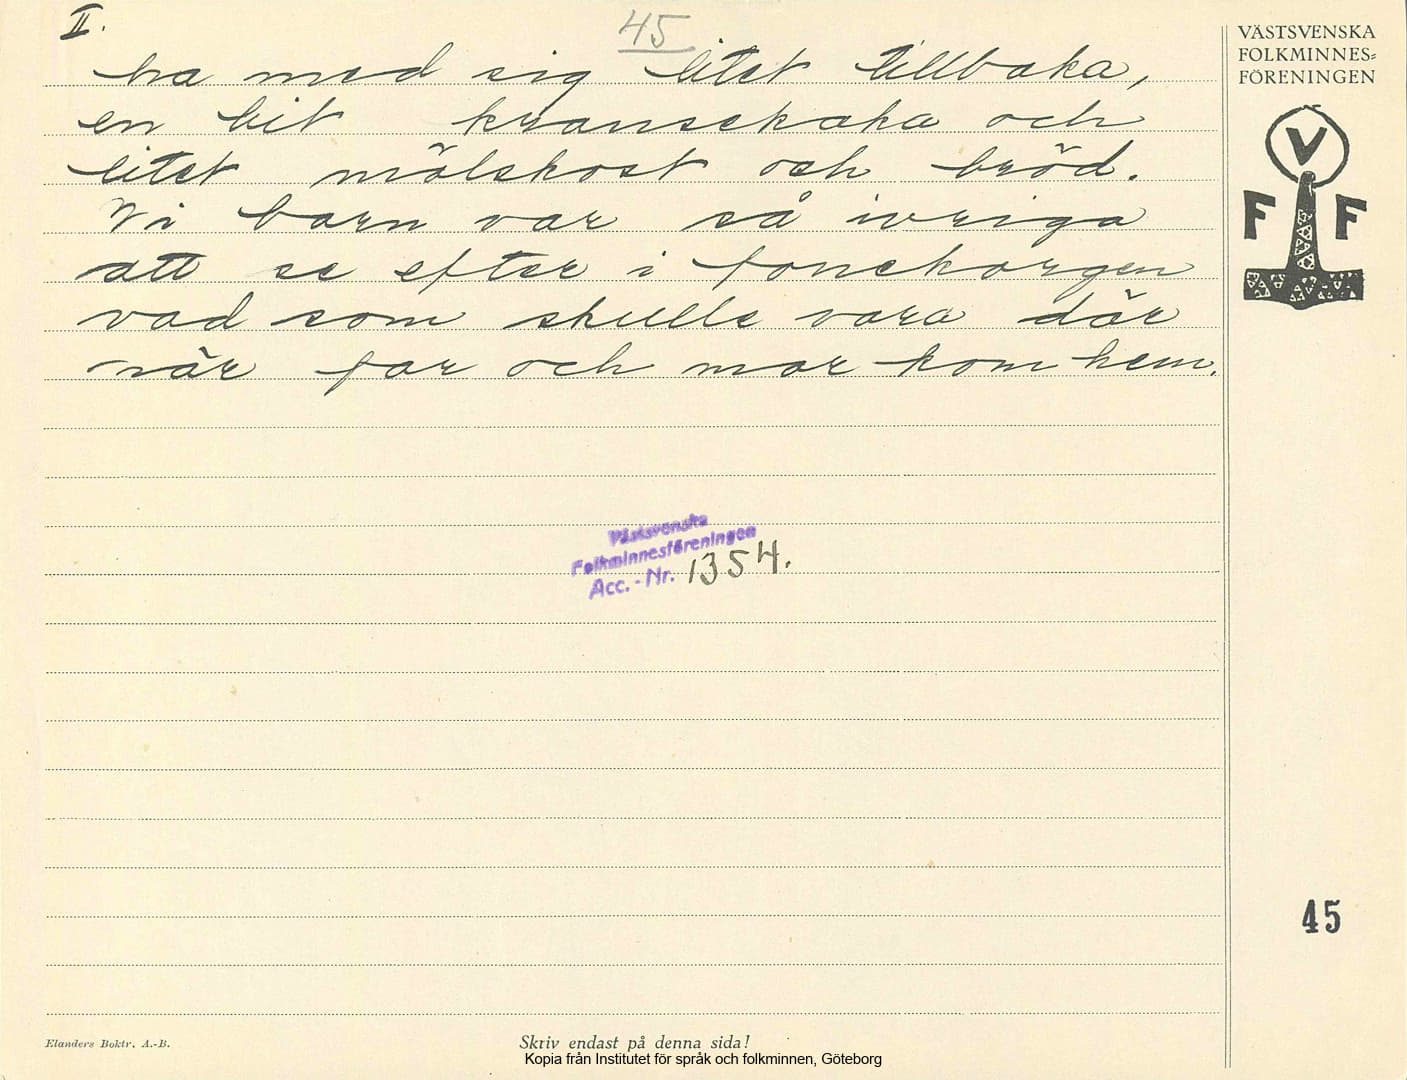 II.
45
VÄSTSVENSKA
FOLKMINNES=
FÖRENINGEN
ha med sig litet tillbaka,
en bit kransekaka och
litet mölskost och bröd.
Vi barn var så ivriga
att se efter i fonekorgen
vad som skulle vara där
när far och mor kom hem.
V
F F
Västsvenska
Folkminnesföreningen
Acc.-Nr. 1354.
45
Elanders Boktr. A.-B.
Skriv endast på denna sida!
Kopia från Institutet för språk och folkminnen, Göteborg